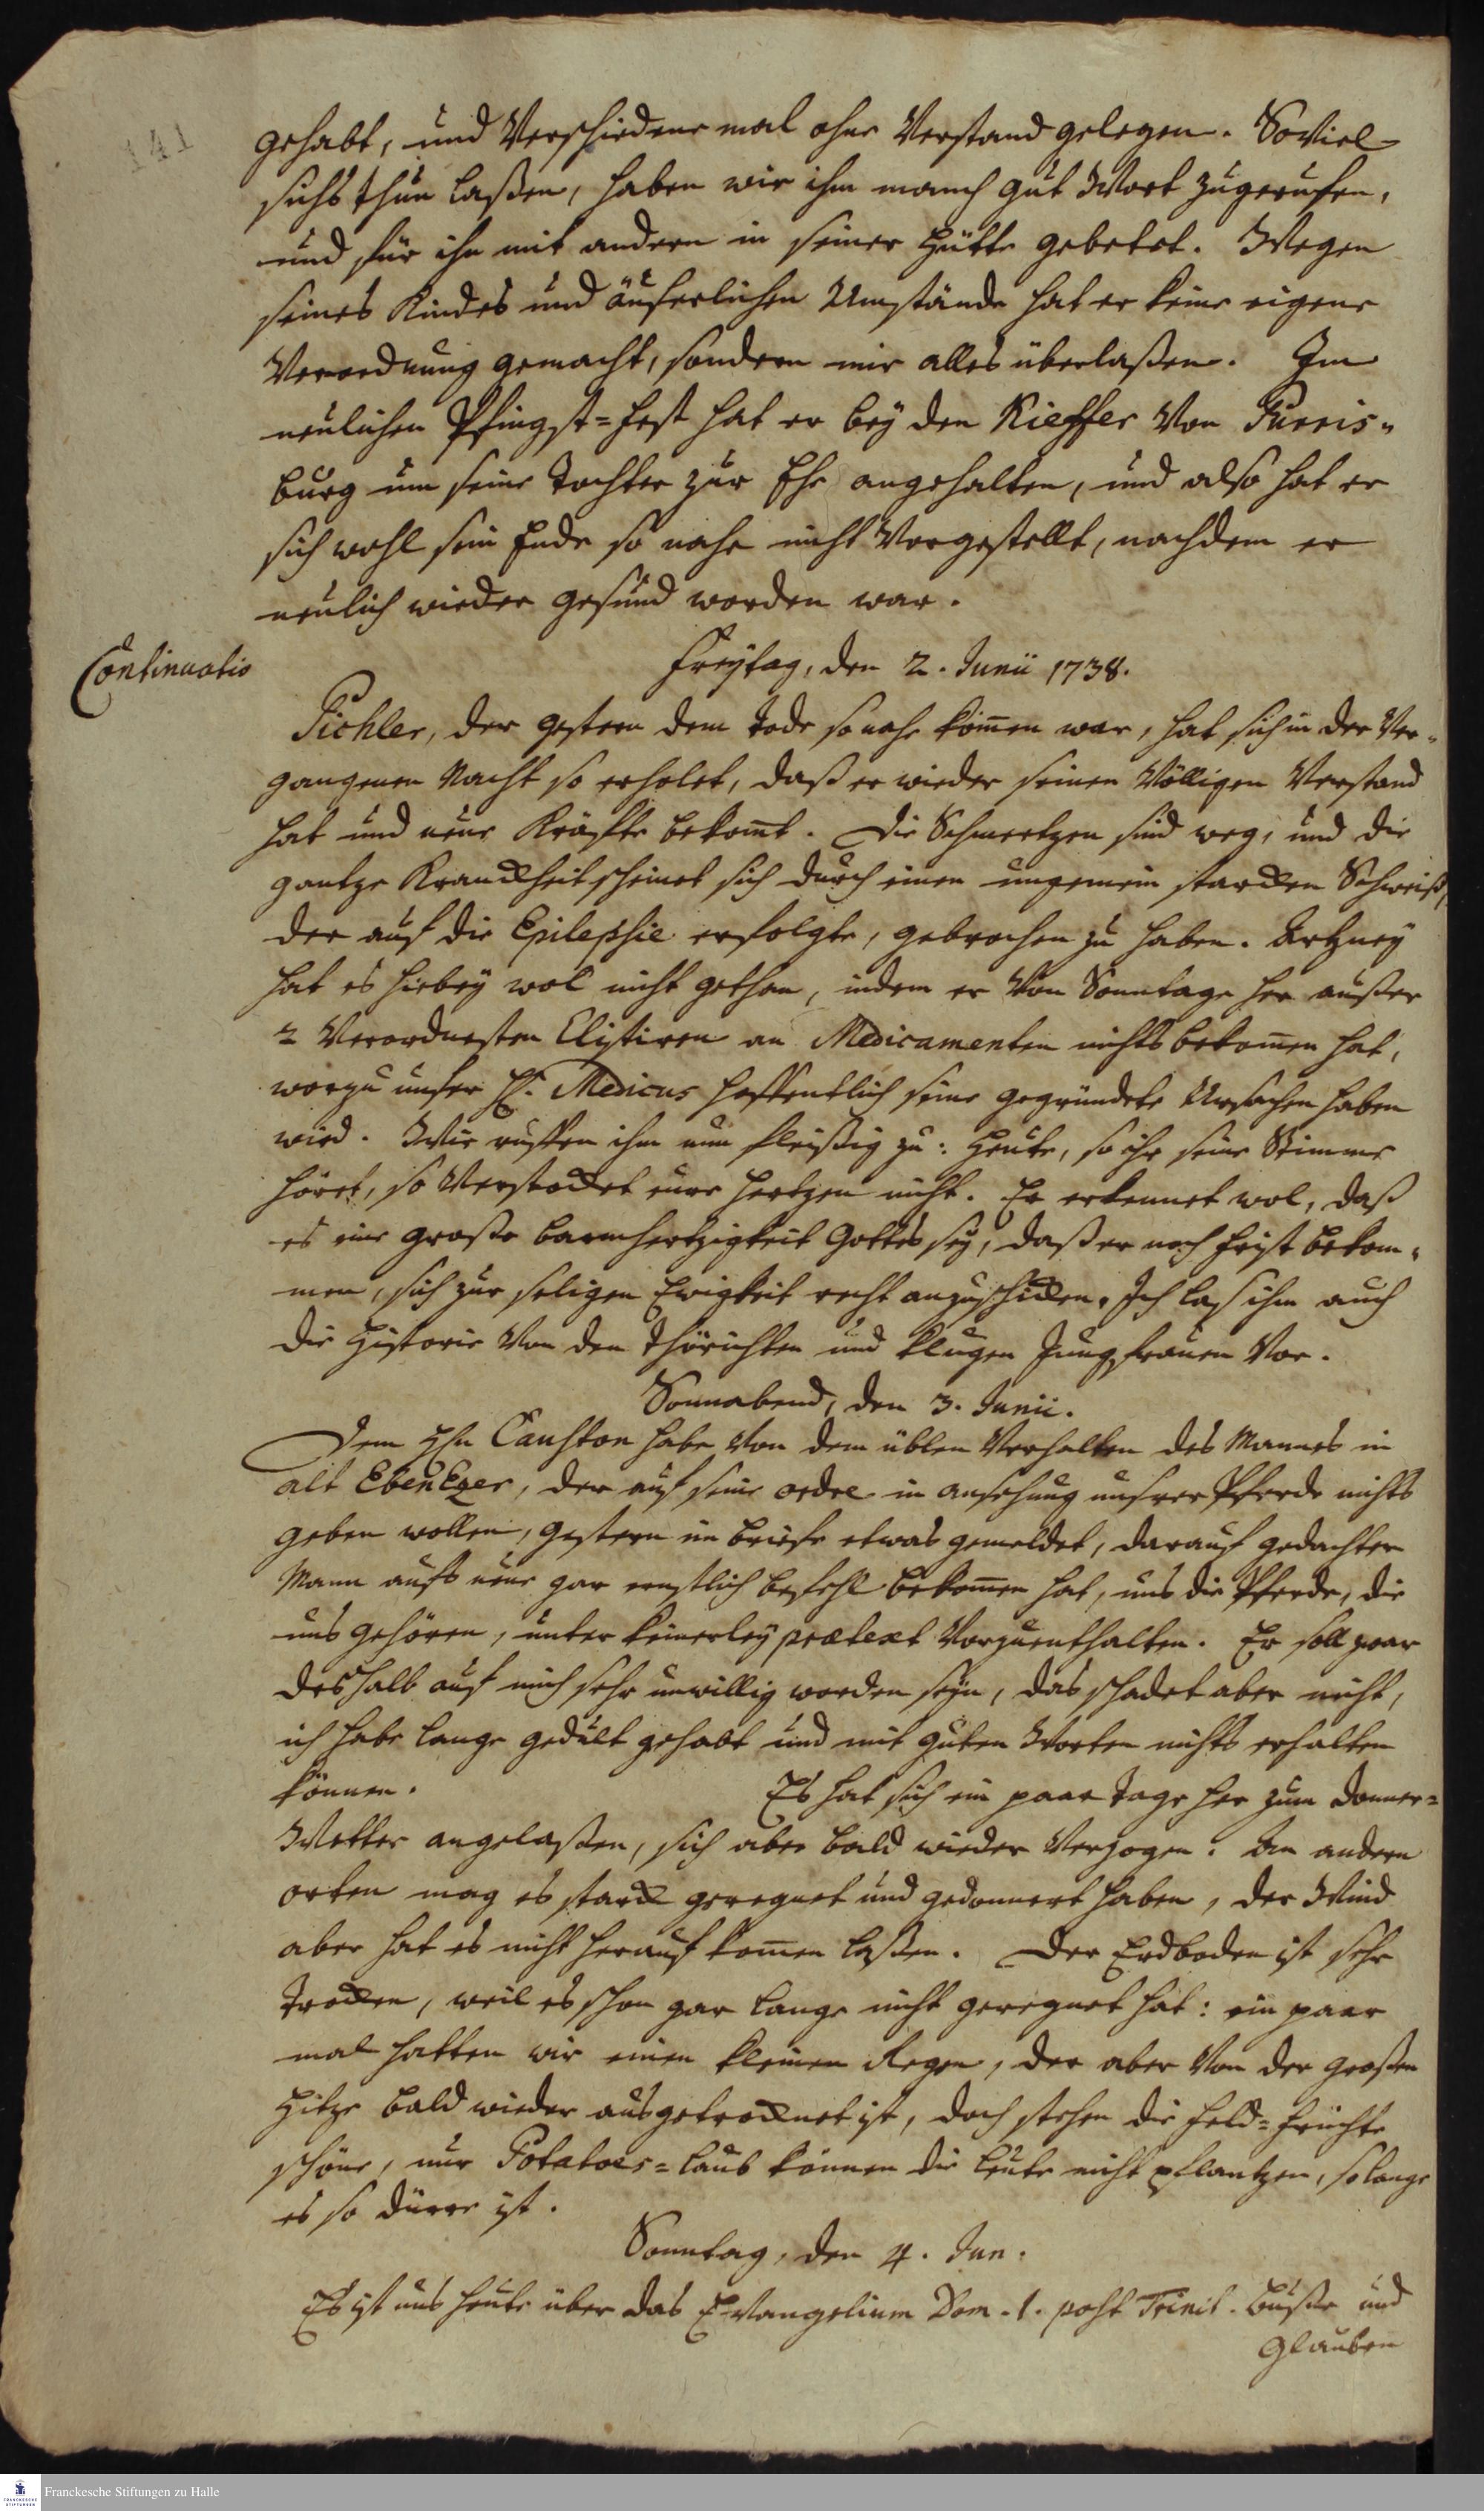 141
gehabt, und Verschiedene mal ohne Verstand gelegen. Soviel
sichs thun laßen, haben wir ihm manch gut Wort zugeruffen,
und für ihn mit andern in seiner Hütte gebetet. Wegen
seines Kindes und äuserlichen Umstände hat er keine eigene
Verordnung gemacht, sondern mir alles überlaßen. Im
neulichen Pfingst=Fest hat er bey den Kieffer von Purris=
burg um seine Tochter zur Ehe angehalten, und also hat er
sich wohl sein Ende so nahe nicht Vorgestellt, nachdem er
neulich wieder gesund worden war.
Continuatio
Freytag, den 2. Junii 1738.
Pichler, der gestern dem Tode so nahe kom̄en war, hat sich in der Ver=
gangenen Nacht so erholet, daß er wieder seinen Völligen Verstand
hat und neue Kräffte bekom̄t. Die Schmertzen sind weg, und die
gantze Kranckheit scheinet sich durch einen ungemein starcken Schweiß,
der auf die Epilepsie erfolgte, gebrochen zu haben. Artzney
hat es hiebey wol nicht gethan, indem er Von Sonntage her außer
2 Verordnesten Clistiren an Medicamenten nichts bekom̄en hat,
worzu unser H. Medicus hoffentlich seine gegründete Ursachen haben
wird. Wir ruffen ihm nun fleißig zu: Heute, so ihr seine Stimme
höret, so Verstocket eure Hertzen nicht. Er erkennet wol, daß
es eine große Barmhertzigkeit Gottes sey, daß er noch Frist bekom=
men, sich zur seligen Ewigkeit recht anzuschicken. Ich laß ihm auch
die Historie Von den thörichten und klugen Jungfrauen Vor.
Sonnabend, den 3. Junii.
Dem Hn Causton habe Von dem üblen Verhalten des Mannes in
alt EbenEzer, der auf seine ordre in ansehung unsrer Pferde nichts
geben wollen, gestern im Briefe etwas gemeldet, darauf gedachter
Mann aufs neue gar ernstlich Befehl bekom̄en hat, uns die Pferde, die
uns gehören, unter keinerley prætext Vorzuenthalten. Er soll zwar
deshalb auf mich sehr unwillig worden seyn, das schadet aber nicht,
ich habe lange gedult gehabt und mit guten Worten nichts erhalten
können. Es hat sich ein paar Tage her zum Donner=
Wetter angelaßen, sich aber bald wieder Verzogen. An andern
orten mag es starck geregnet und gedonnert haben, der Wind
aber hat es nicht herauf kom̄en laßen. Der Erdboden ist sehr
trocken, weil es schon gar lange nicht geregnet hat: ein paar
mal hatten wir einen kleinen Regen, der aber Von der großen
Hitze bald wieder ausgetrocknet ist, doch stehen die Feld=Früchte
schöne, nur Potatoes=Laub können die Leute nicht pflantzen, so lange
es so dürre ist.
Sonntag, den 4. Jun.
Es ist uns heute über das Evangelium Dom. 1. post Trinit. Buße und
Glauben
Franckesche Stiftungen zu Halle